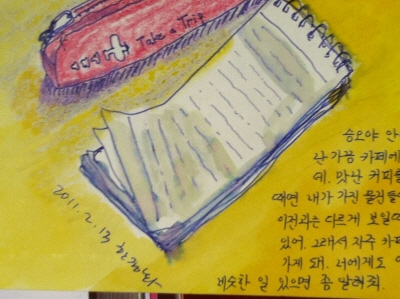 Take a Trip
승오야 안
난 가끔 카페에
데. 맛난 커피를
때면 내가 가진 물건들이
이전과는 다르게 보일때
있어. 그래서 자주 카페
가게 돼. 너에게도 이
비슷한 일 있으면 좀 말해줘.
2011. 2. 13